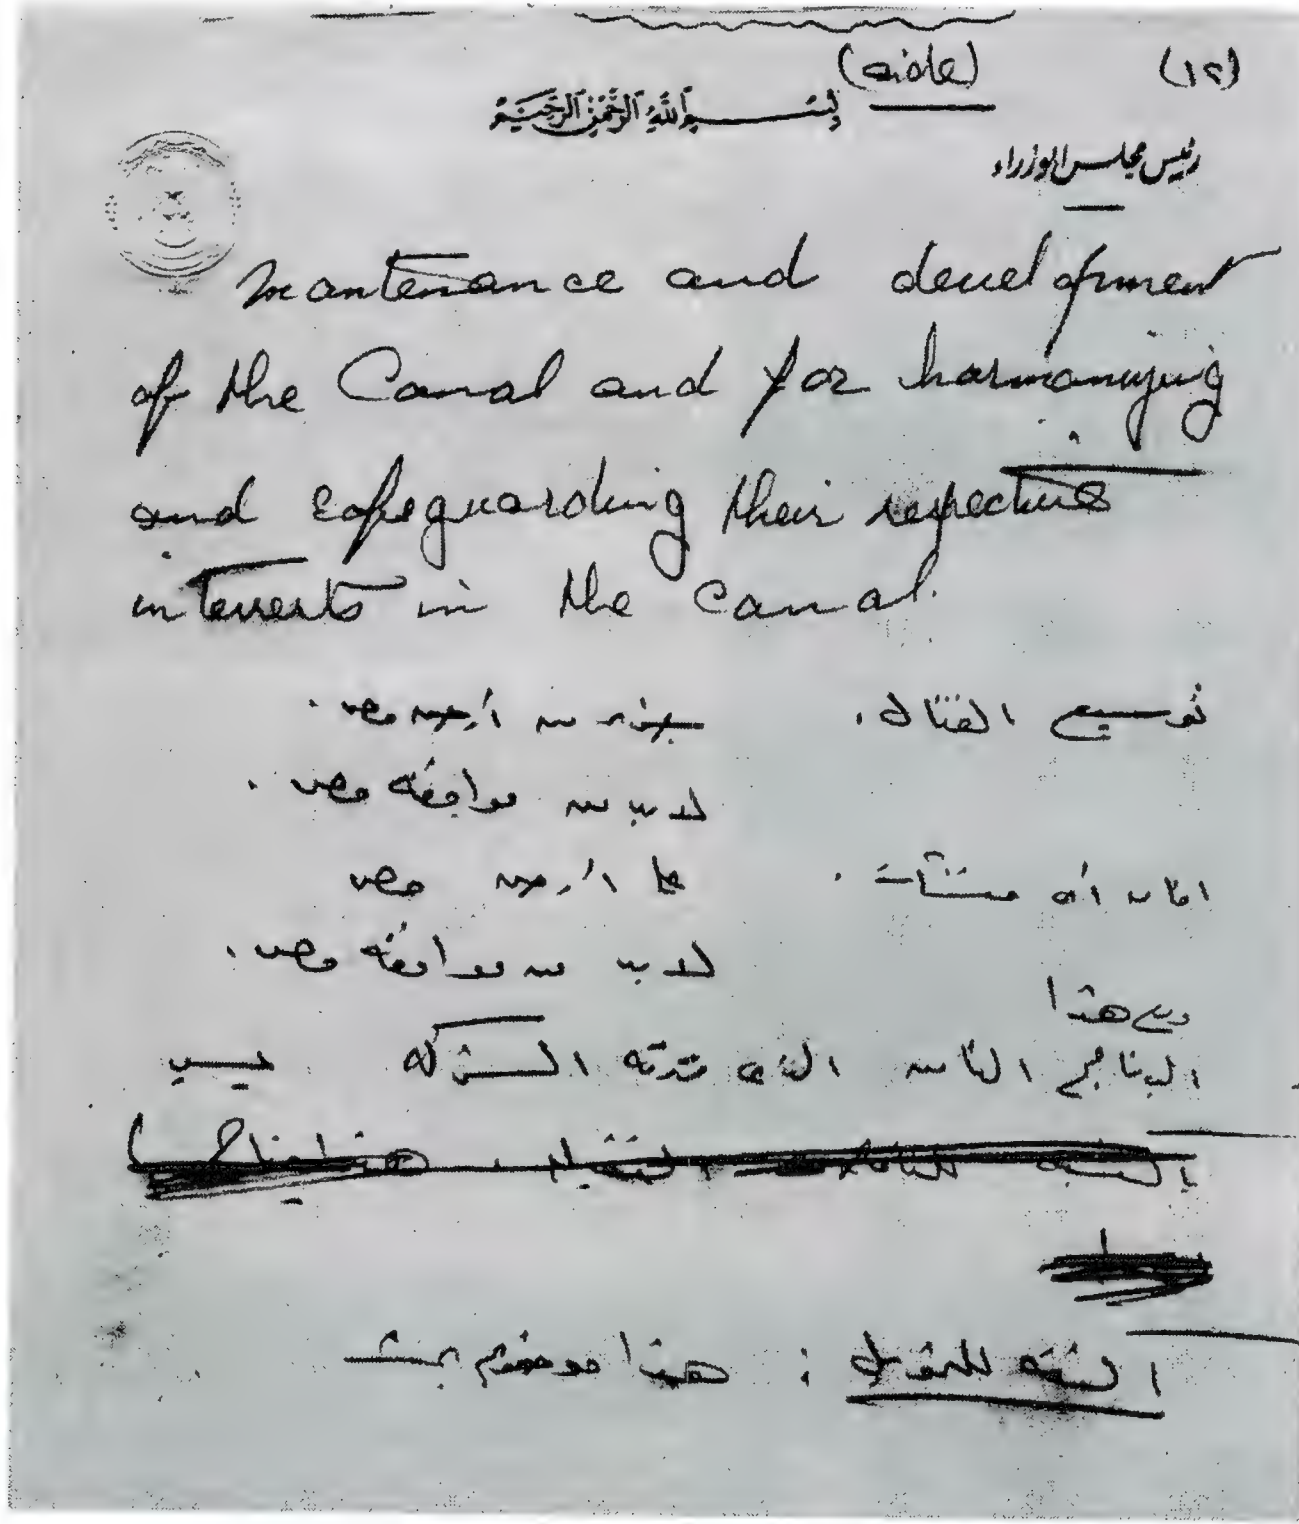 (١٢)
بسم الله الرحمن الرحيم
رئيس مجلس الوزراء
maintenance and development
of the Canal and for harmonizing
and safeguarding their respective
interests in the canal.
توسيع القنال . من أرض مصر .
لا بد من موافقة مصر .
منشآت . على أرض مصر
لا بد من موافقة مصر .
وعلى هذا
البرنامج الذى الشركة
: هذا موضوع بحث